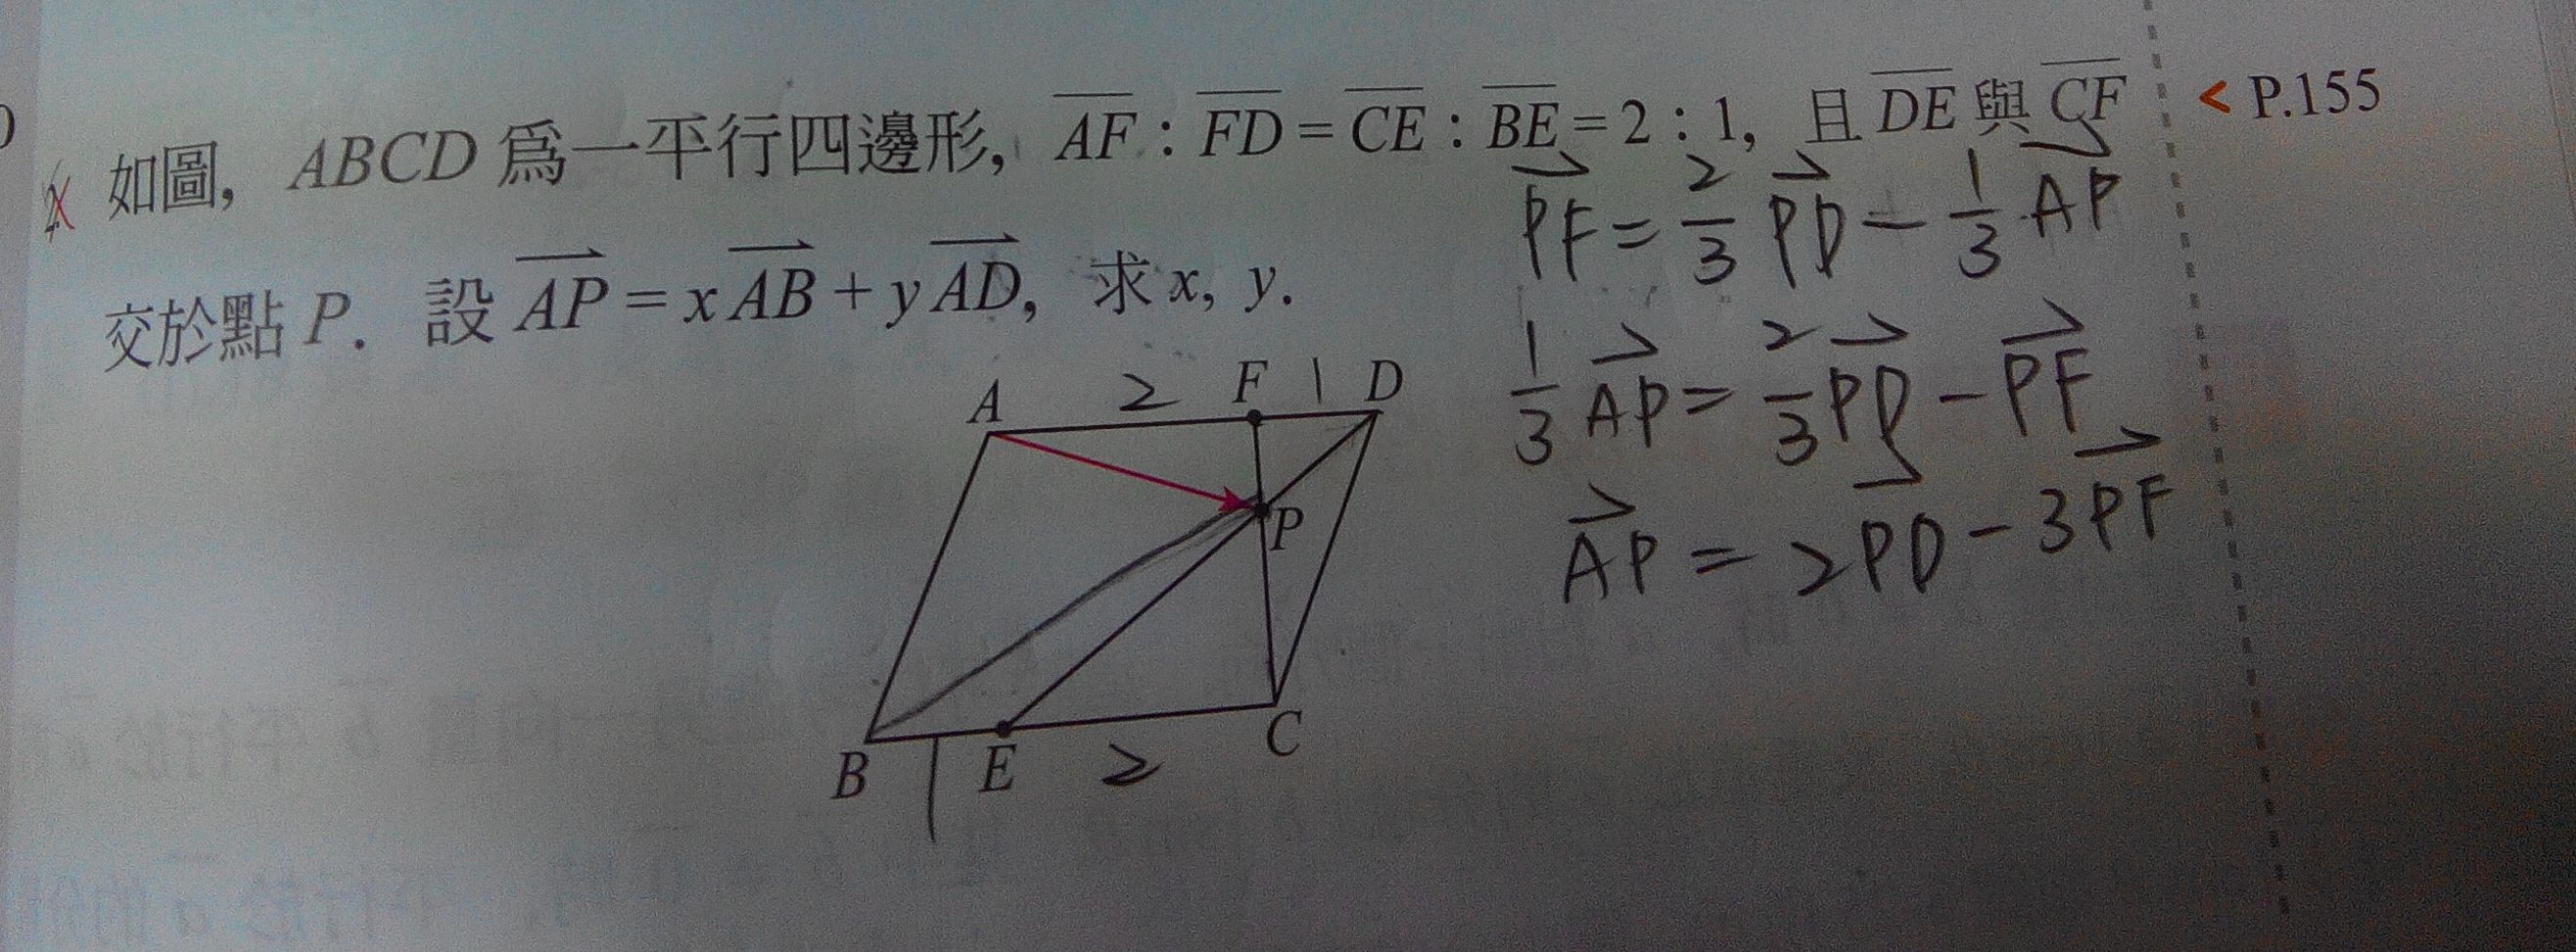 如圖, ABCD 爲一平行四邊形, \overline{AF} : \overline{FD} = \overline{CE} : \overline{BE} = 2 : 1, 且 \overline{DE} 與 \overline{CF}
< P.155
交於點 P. 設 \overrightarrow{AP} = x\overrightarrow{AB} + y\overrightarrow{AD}, 求 x, y.
\overrightarrow{PF} = \frac{2}{3} \overrightarrow{PD} - \frac{1}{3} \overrightarrow{AP}
\frac{1}{3} \overrightarrow{AP} = \frac{2}{3} \overrightarrow{PD} - \overrightarrow{PF}
\overrightarrow{AP} = 2\overrightarrow{PD} - 3\overrightarrow{PF}
A 2 F 1 D
P
B 1 E 2 C